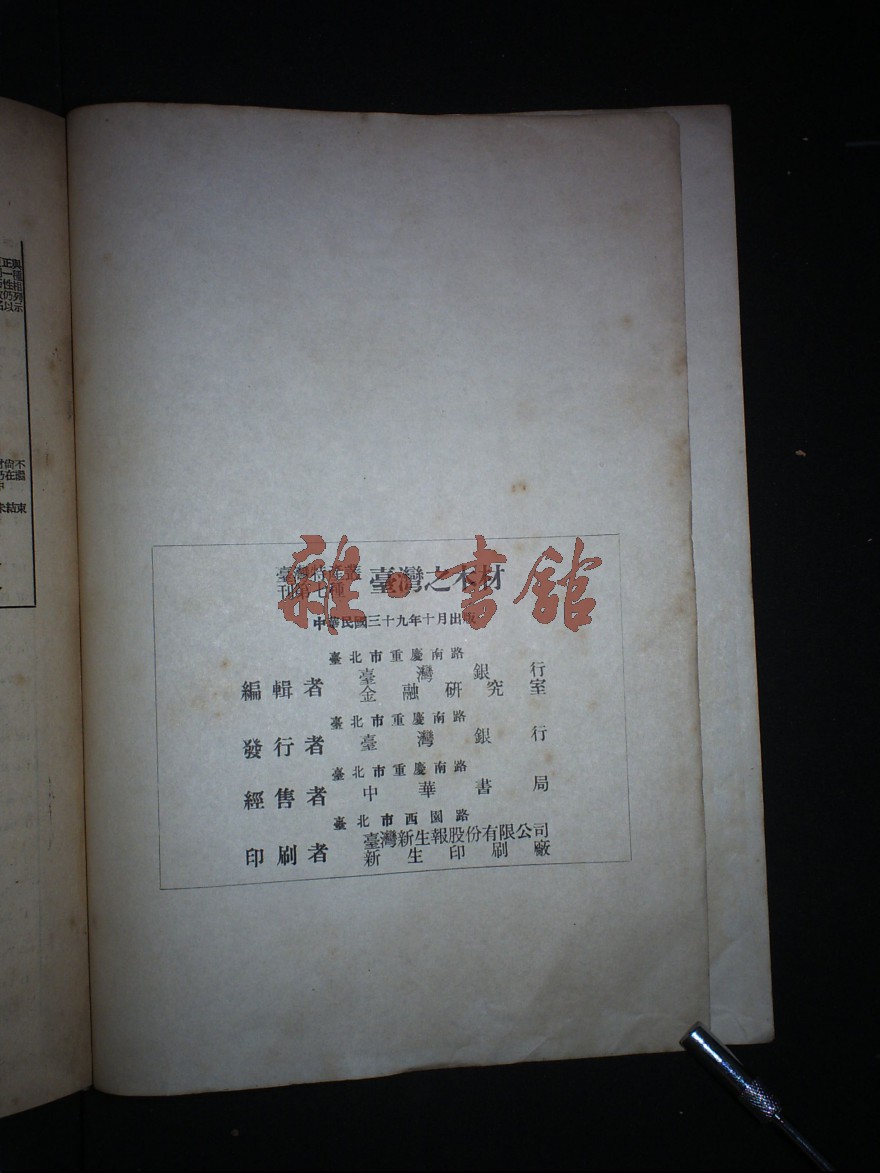 正興
一種
性相
仍列
以示
尙不
在濫
未結束
雜·書館
臺灣特產叢
刊第七種
臺灣之木材
中華民國三十九年十月出版
臺北市重慶南路
編輯者 臺灣銀行
金融研究室
臺北市重慶南路
發行者 臺灣銀行
臺北市重慶南路
經售者 中華書局
臺北市西園路
臺灣新生報股份有限公司
印刷者 新生印刷廠